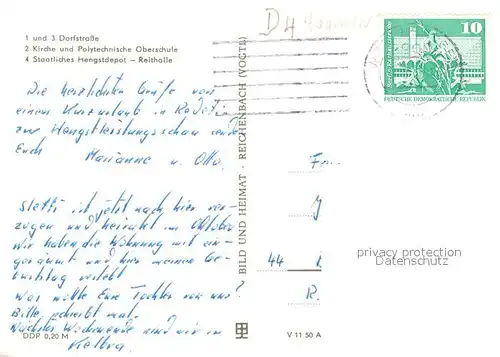 1 und 3 Dorfstraße
2 Kirche und Polytechnische Oberschule
4 Staatliches Hengstdepot — Reithalle
D4
10
DEUTSCHE DEMOKRATISCHE REPUBLIK
Die herzlichsten Grüße von
einem Kurzurlaub in
zur Hengstleistungsschau sendet
Euch
Marianne u. Otto.
Steffi ist jetzt nach hier ver-
zogen und heiratet im Oktober
Wir haben die Wohnung mit ein-
geräumt und hier meinen Ge-
burtstag verlebt.
Was wollte Eure Tochter von uns?
Bitte schreibt mal.
Nächstes Wochenende sind wir in
Kelbra.
BILD UND HEIMAT · REICHENBACH (VOGTL)
Fam.
J
44
R.
privacy protection
Datenschutz
DDR 0,20 M
V 11 50 A